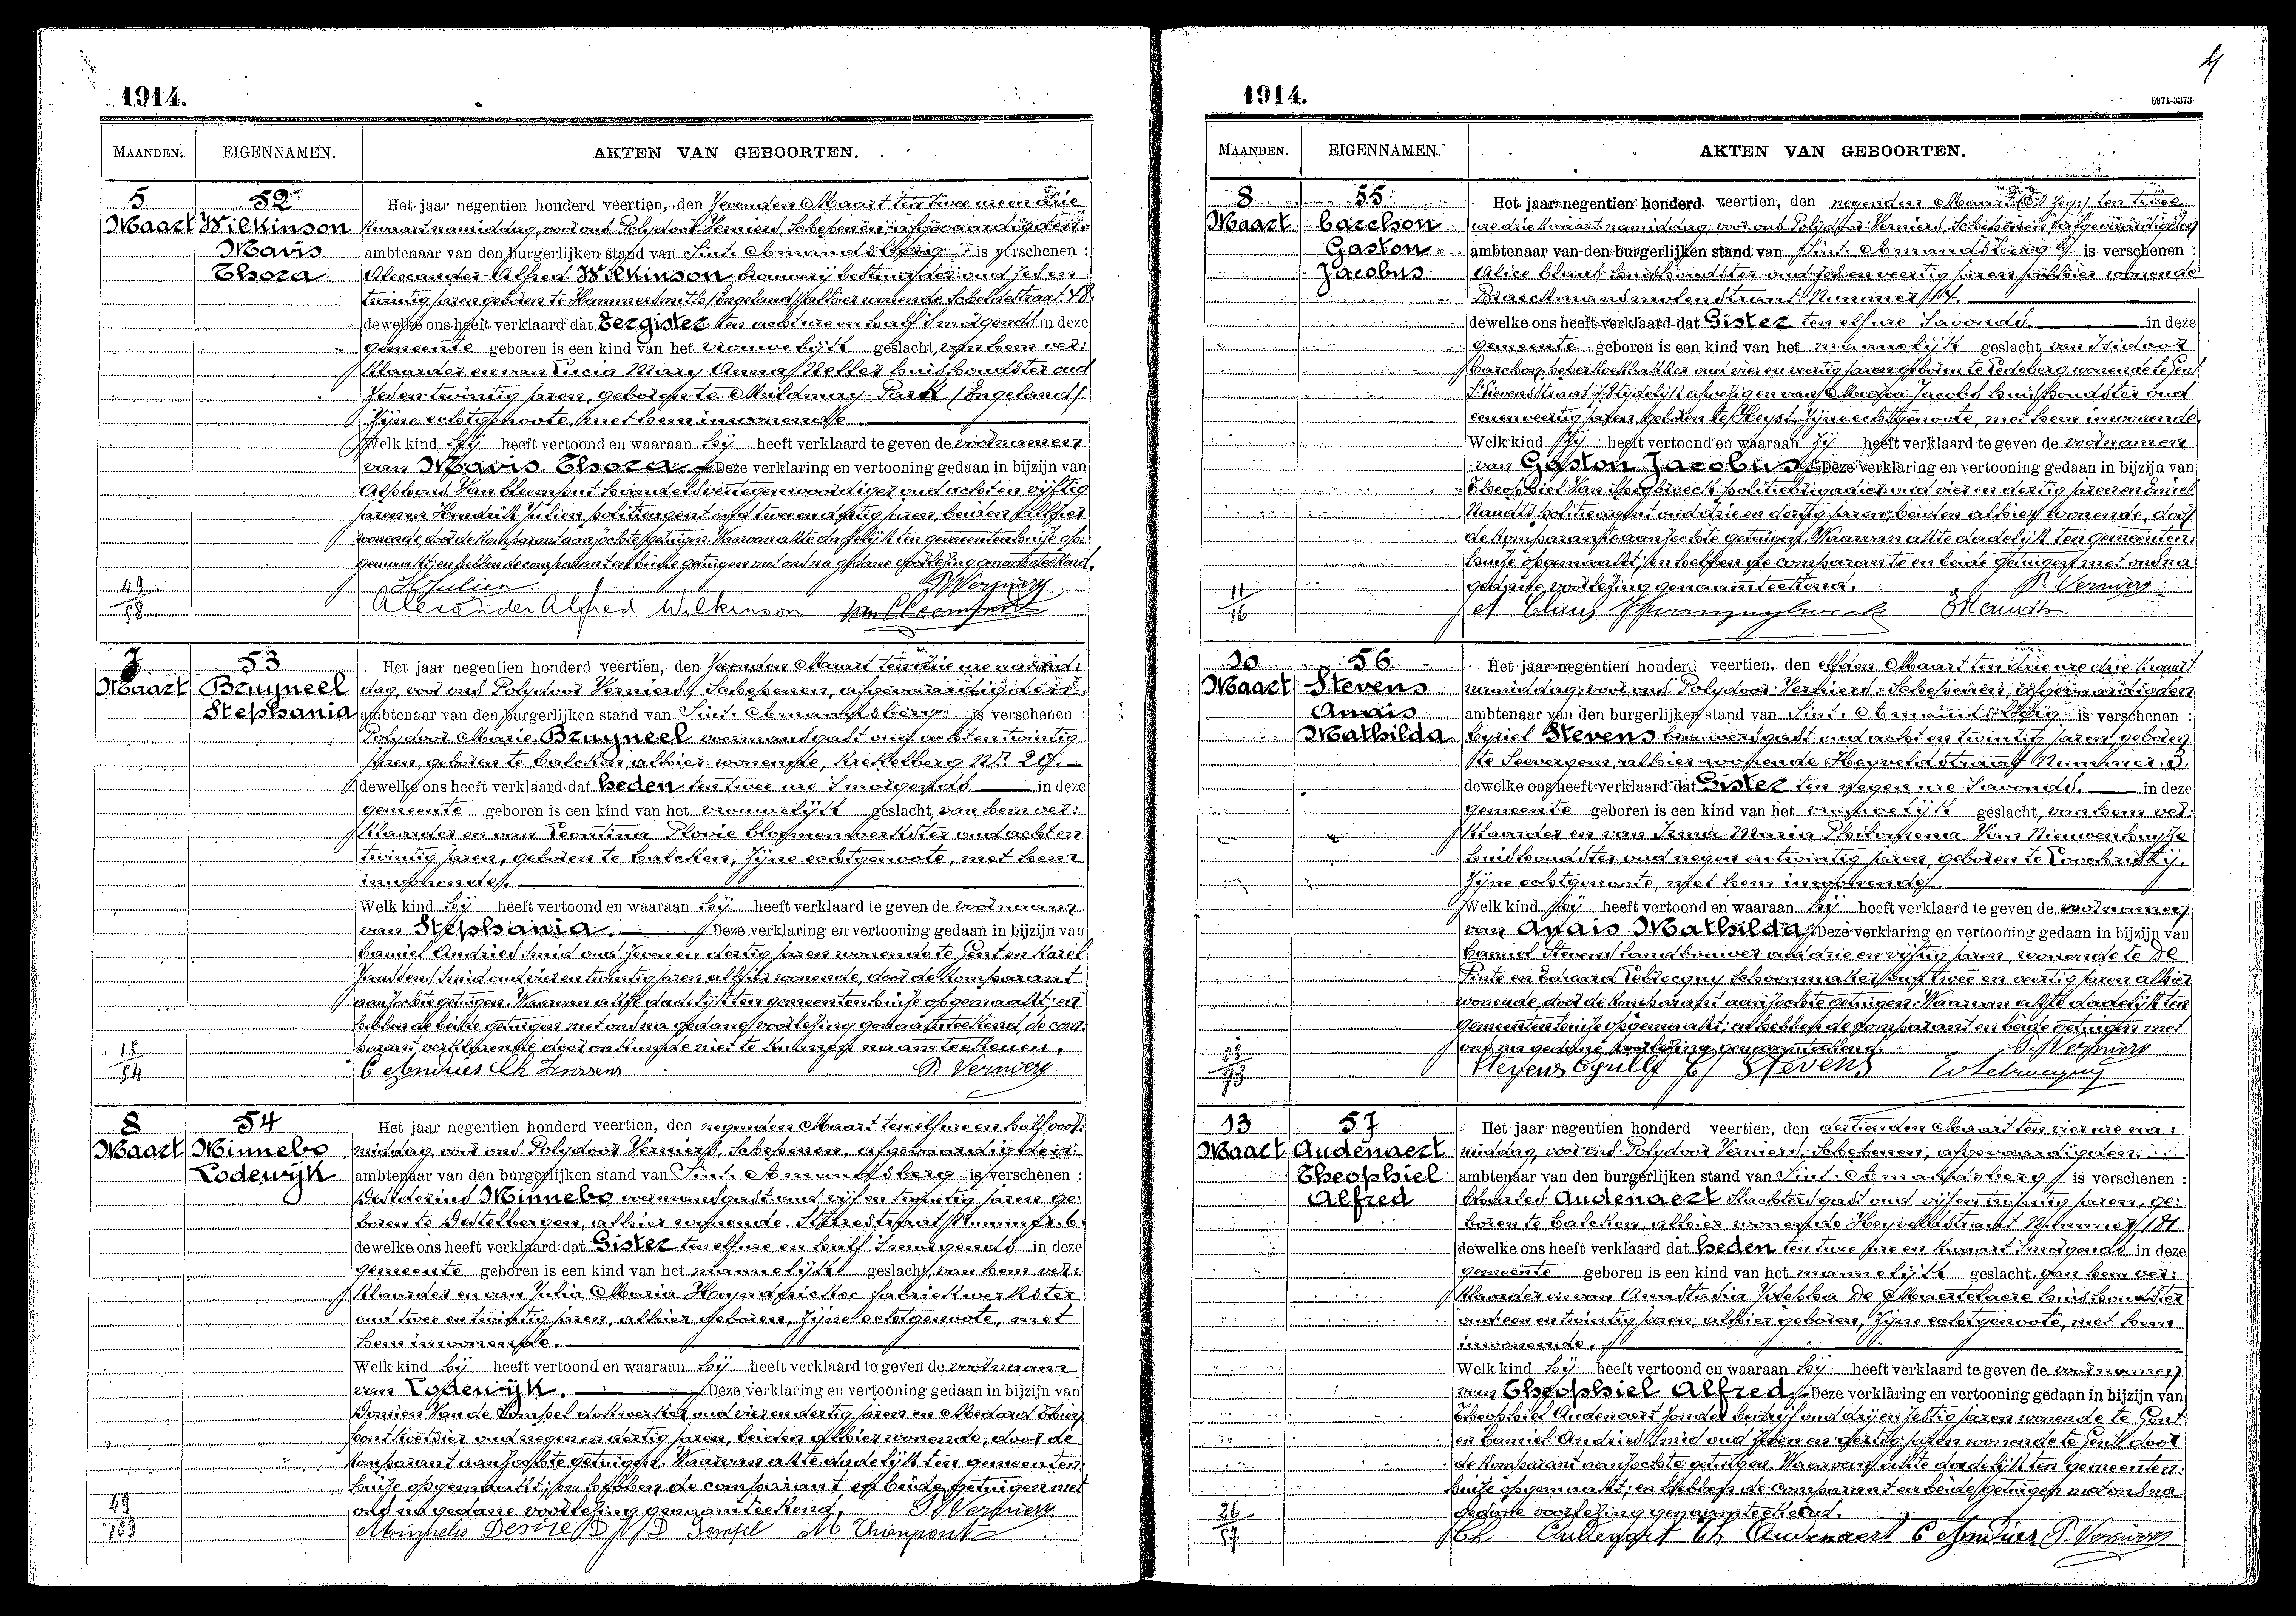 1914.
MAANDEN. EIGENNAMEN. AKTEN VAN GEBOORTEN.
5 Maart
52
Wilkinson
Mavis
Thora
Het jaar negentien honderd veertien, den zevenden Maart ten twee uren drie
kwaart namiddag, voor ons Polydoor Verniers, Schepenen, afgevaardigden
ambtenaar van den burgerlijken stand van Sint-Amandsberg is verschenen :
Alexander Alfred Wilkinson brouwerij bestuurder oud zes en
twintig jaren geboren te Hammersmith (Engeland) alhier wonende Scheldestraat
dewelke ons heeft verklaard dat eergister ten acht ure en half 's morgends in deze
gemeente geboren is een kind van het vrouwelijk geslacht, van hem ver:
klaarder en van Lucia Mary Anna huishoudster oud
zes en twintig jaren, geboren te Mildmay-Park (Engeland)
zijne echtgenoote, met hem inwonende
Welk kind hij heeft vertoond en waaraan hij heeft verklaard te geven de voornamen
van Mavis Thora Deze verklaring en vertooning gedaan in bijzijn van
Alphons Van Cleemput handelsvertegenwoordiger oud acht en vijftig
jaren en Hendrik Julien politieagent oud twee en jaren, beiden alhier
wonende, door de komparant aanzochte getuigen. Waarvan akte dadelijk ten gemeentenhuize op:
gemaakt; en hebben de comparant en beide getuigen met ons na gedane voorlezing genaamteekend.
49
58
H Julien P. Verniers
Alexander Alfred Wilkinson Van Cleemput
7 Maart
53
Bruyneel
Stephania
Het jaar negentien honderd veertien, den zevenden Maart ten drie ure namid:
dag, voor ons Polydoor Verniers, Schepenen, afgevaardigden
ambtenaar van den burgerlijken stand van Sint-Amandsberg is verschenen :
Polydoor Marie Bruyneel oud acht en twintig
jaren, geboren te Calcken, alhier wonende, Krekelberg Nr 29.
dewelke ons heeft verklaard dat heden ten twee ure 's morgends in deze
gemeente geboren is een kind van het vrouwelijk geslacht, van hem ver:
klaarder en van Leontina Plovie bloemenwerkster oud acht en
twintig jaren, geboren te Calcken, zijne echtgenoote, met hem
inwonende.
Welk kind hij heeft vertoond en waaraan hij heeft verklaard te geven de voornaam
van Stephania Deze verklaring en vertooning gedaan in bijzijn van
Camiel Andries smid oud zeven en dertig jaren wonende te Gent en Karel
Janssens smid oud vier en twintig jaren alhier wonende, door de komparant
aanzochte getuigen. Waarvan akte dadelijk ten gemeentenhuize opgemaakt; en
hebben de beide getuigen met ons na gedane voorlezing genaamteekend, de com:
parant verklarende door onkunde niet te kunnen naamteekenen.
18
54
C Andries Ch Janssens P. Verniers
8 Maart
54
Minnebo
Lodewijk
Het jaar negentien honderd veertien, den negenden Maart ten elf ure en half voor:
middag, voor ons Polydoor Verniers, Schepenen, afgevaardigden
ambtenaar van den burgerlijken stand van Sint-Amandsberg is verschenen :
Desiderius Minnebo oud vijf en twintig jaren ge:
boren te Destelbergen, alhier wonende, Nummer 6.
dewelke ons heeft verklaard dat Gister ten elf ure en half 's morgends in deze
gemeente geboren is een kind van het mannelijk geslacht, van hem ver:
klaarder en van Julia Maria fabriekwerkster
oud twee en twintig jaren, alhier geboren, zijne echtgenoote, met
hem inwonende.
Welk kind hij heeft vertoond en waaraan hij heeft verklaard te geven de voornaam
van Lodewijk. Deze verklaring en vertooning gedaan in bijzijn van
Van de dokwerker oud vier en dertig jaren en Medard Thien:
pont oud negen en dertig jaren, beiden alhier wonende, door de
komparant aanzochte getuigen. Waarvan akte dadelijk ten gemeenten:
huize opgemaakt; en hebben de comparant en beide getuigen met
ons na gedane voorlezing genaamteekend. P. Verniers
49
Minnebo Desire M Thienpont
1914.
MAANDEN. EIGENNAMEN. AKTEN VAN GEBOORTEN.
8 Maart
55
Carelson
Gaston
Jacobus
Het jaar negentien honderd veertien, den negenden Maart ten twee
ure drie kwaart namiddag, voor ons Polydoor Verniers, Schepenen, afgevaardigden
ambtenaar van den burgerlijken stand van Sint-Amandsberg is verschenen :
Alice Claus oud zes en veertig jaren alhier wonende
Braeckmansmolenstraat Nummer
dewelke ons heeft verklaard dat Gister ten elf ure 's avonds. in deze
gemeente geboren is een kind van het mannelijk geslacht, van Isidoor
oud vier en veertig jaren geboren te Ledeberg, wonende te Gent
tijdelijk afwezig en van Maria Jacobs huishoudster oud
een en veertig jaren, geboren te Heyst, zijne echtgenoote, met hem inwonende.
Welk kind zij heeft vertoond en waaraan zij heeft verklaard te geven de voornamen
van Gaston Jacobus Deze verklaring en vertooning gedaan in bijzijn van
Theophiel Van politiebrigadier oud vier en dertig jaren en Emiel
Naudts politieagent oud drie en dertig jaren, beiden alhier wonende, door
de komparante aanzochte getuigen. Waarvan akte dadelijk ten gemeenten:
huize opgemaakt; en hebben de comparante en beide getuigen met ons na
gedane voorlezing genaamteekend. P. Verniers
11
16
A Claus E Naudts
10 Maart
56
Stevens
Anais
Mathilda
Het jaar negentien honderd veertien, den elfden Maart ten drie ure drie kwaart
namiddag, voor ons Polydoor Verniers, Schepenen, afgevaardigden
ambtenaar van den burgerlijken stand van Sint-Amandsberg is verschenen :
Cyriel Stevens brouwersgast oud acht en twintig jaren, geboren
te Seevergem, alhier wonende Heyveldstraat Nummer 3.
dewelke ons heeft verklaard dat Gister ten negen ure 's avonds. in deze
gemeente geboren is een kind van het vrouwelijk geslacht, van hem ver:
klaarder en van Irma Maria Philomena Van Nieuwenhuyse
huishoudster oud negen en twintig jaren, geboren te Loochristij,
zijne echtgenoote, met hem inwonende.
Welk kind hij heeft vertoond en waaraan hij heeft verklaard te geven de voornamen
van Anais Mathilda Deze verklaring en vertooning gedaan in bijzijn van
Camiel Stevens landbouwer oud drie en vijftig jaren, wonende te De
Pinte en Eduard schoenmaker oud twee en veertig jaren alhier
wonende, door de komparant aanzochte getuigen. Waarvan akte dadelijk ten
gemeentenhuize opgemaakt; en hebben de comparant en beide getuigen met
ons na gedane voorlezing genaamteekend. P. Verniers
Stevens C Stevens
13 Maart
57
Audenaert
Theophiel
Alfred
Het jaar negentien honderd veertien, den dertienden Maart ten vier ure na:
middag, voor ons Polydoor Verniers, Schepenen, afgevaardigden
ambtenaar van den burgerlijken stand van Sint-Amandsberg is verschenen :
Charles Audenaert slachtersgast oud vijf en twintig jaren, ge:
boren te Calcken, alhier wonende Heyveldstraat Nummer 181
dewelke ons heeft verklaard dat heden ten twee ure en kwaart 's morgends in deze
gemeente geboren is een kind van het mannelijk geslacht, van hem ver:
klaarder en van Anastasia De Maertelaere huishoudster
oud een en twintig jaren, alhier geboren, zijne echtgenoote, met hem
inwonende.
Welk kind hij heeft vertoond en waaraan hij heeft verklaard te geven de voornamen
van Theophiel Alfred Deze verklaring en vertooning gedaan in bijzijn van
Theophiel Audenaert zonder bedrijf oud drij en zestig jaren wonende te Gent
en Camiel Andries smid oud zeven en dertig jaren wonende te Gent door
de komparant aanzochte getuigen. Waarvan akte dadelijk ten gemeenten:
huize opgemaakt; en hebben de comparant en beide getuigen met ons na
gedane voorlezing genaamteekend.
26
57
Ch Audenaert Th Audenaert C Andries P. Verniers